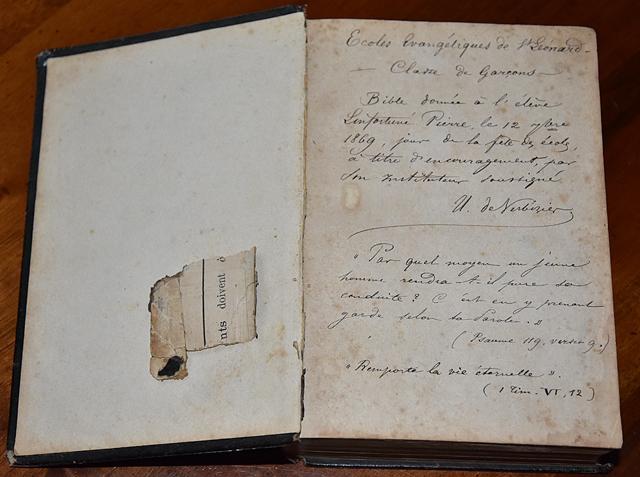 Ecoles Evangéliques de St Léonard -
- Classe de Garçons -
Bible donnée à l'élève
Linfortuné Pierre, le 12 7bre
1869, jour de la fête des écoles,
à titre d'encouragement, par
son Instituteur soussigné
U. de Nerbizier
" Par quel moyen un jeune
homme rendra-t-il pure sa
conduite ? C'est en y prenant
garde selon ta Parole. »
( Psaume 119. verset 9. )
" Remporte la vie éternelle ».
( 1 Tim. VI, 12 )
nts doivent